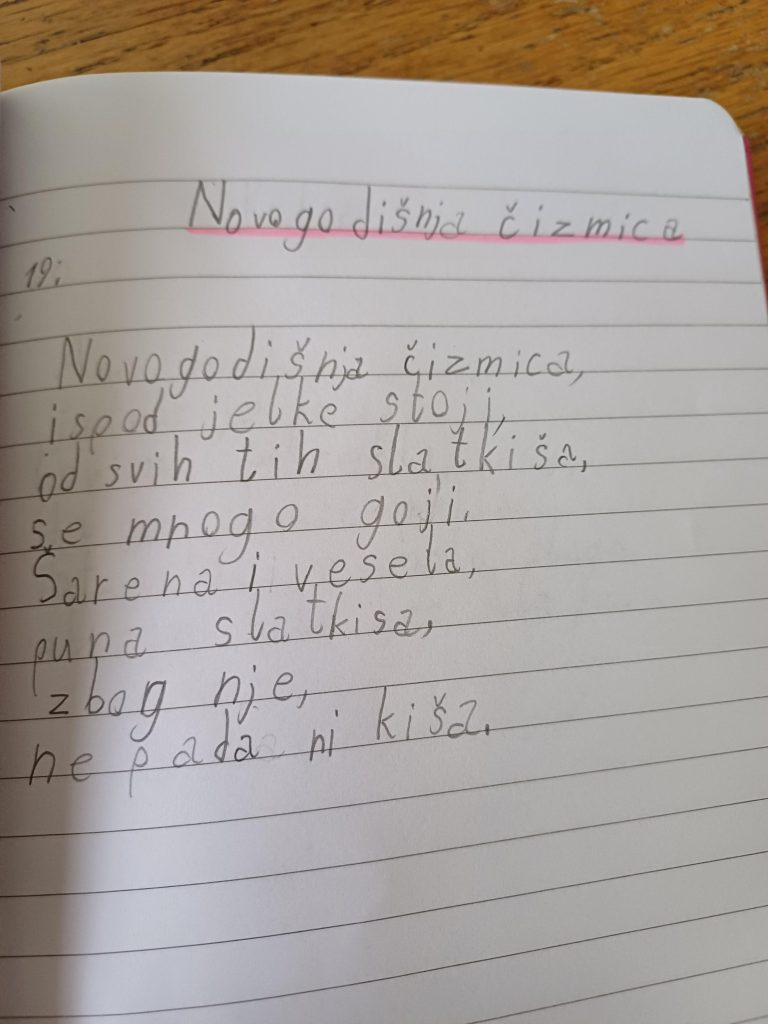 Novogodišnja čizmica
19.
Novogodišnja čizmica,
ispod jelke stoji,
od svih tih slatkiša,
se mnogo goji.
Šarena i vesela,
puna slatkisa,
zbog nje,
ne pada ni kiša.